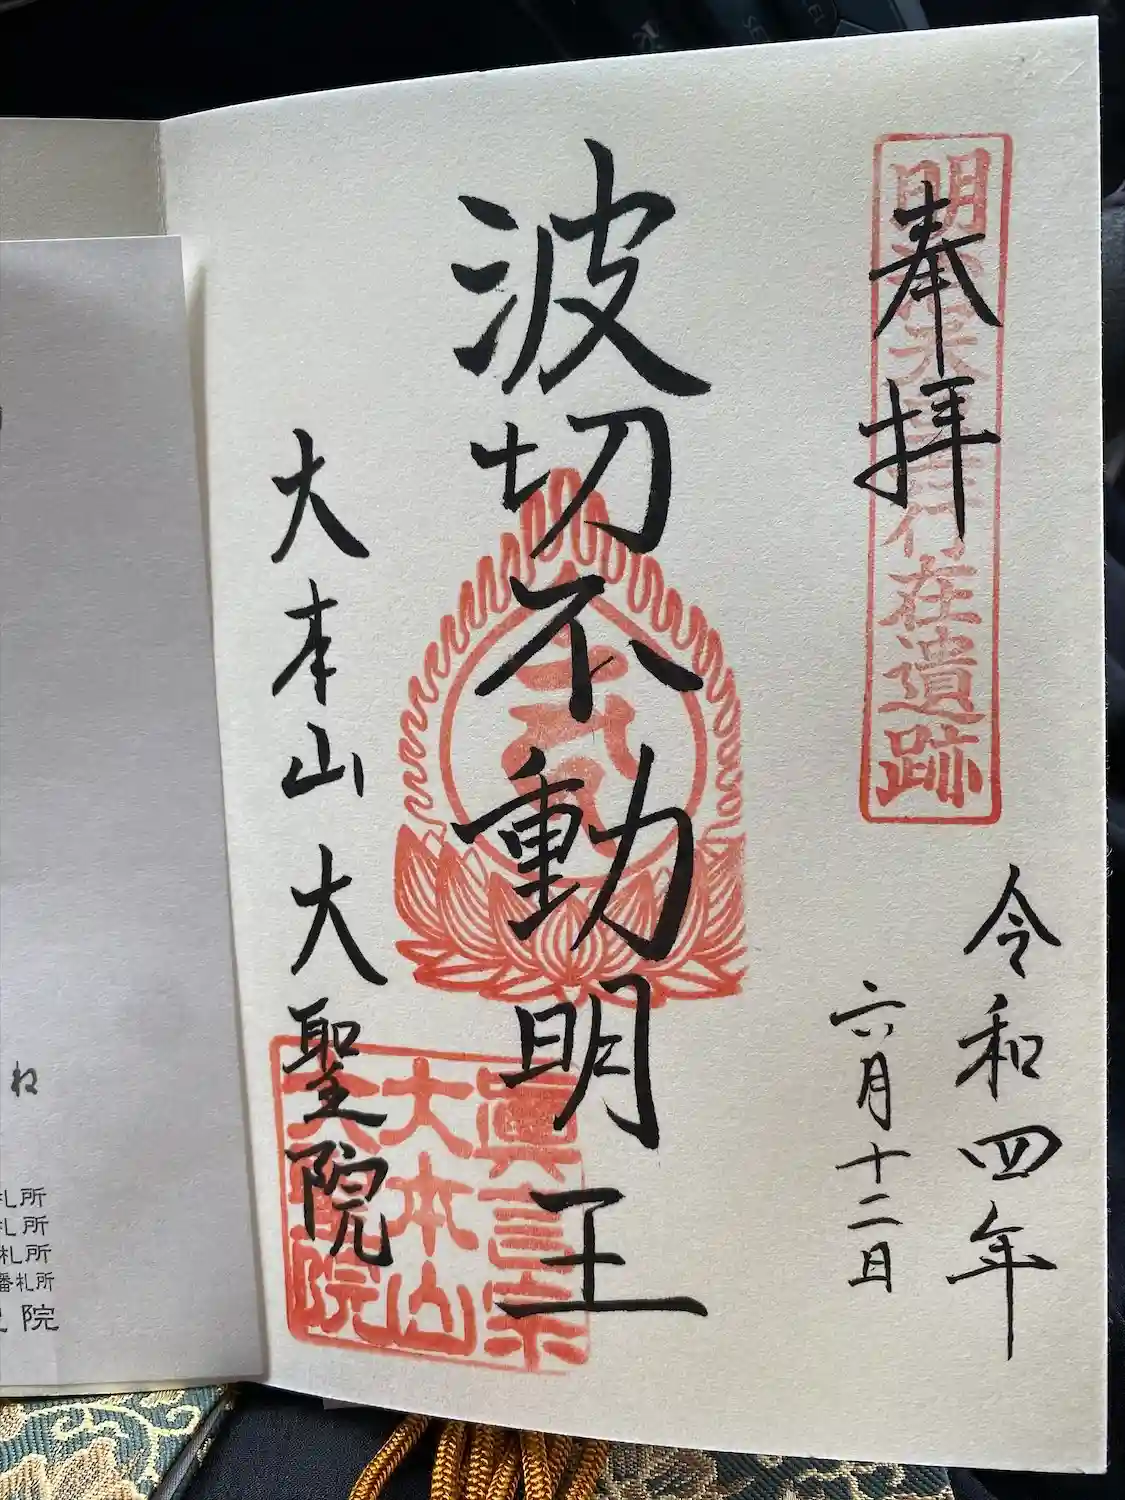 奉拝
明治天皇行在遺跡
令和四年
六月十二日
波切不動明王
大本山 大聖院
眞言宗
大本山
大聖院
ね
札所
札所
札所
札所
院